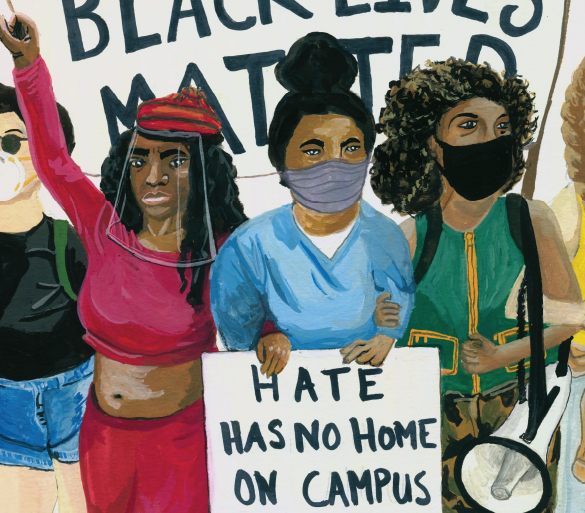 BLACK LIVES
MATTER
HATE
HAS NO HOME
ON CAMPUS